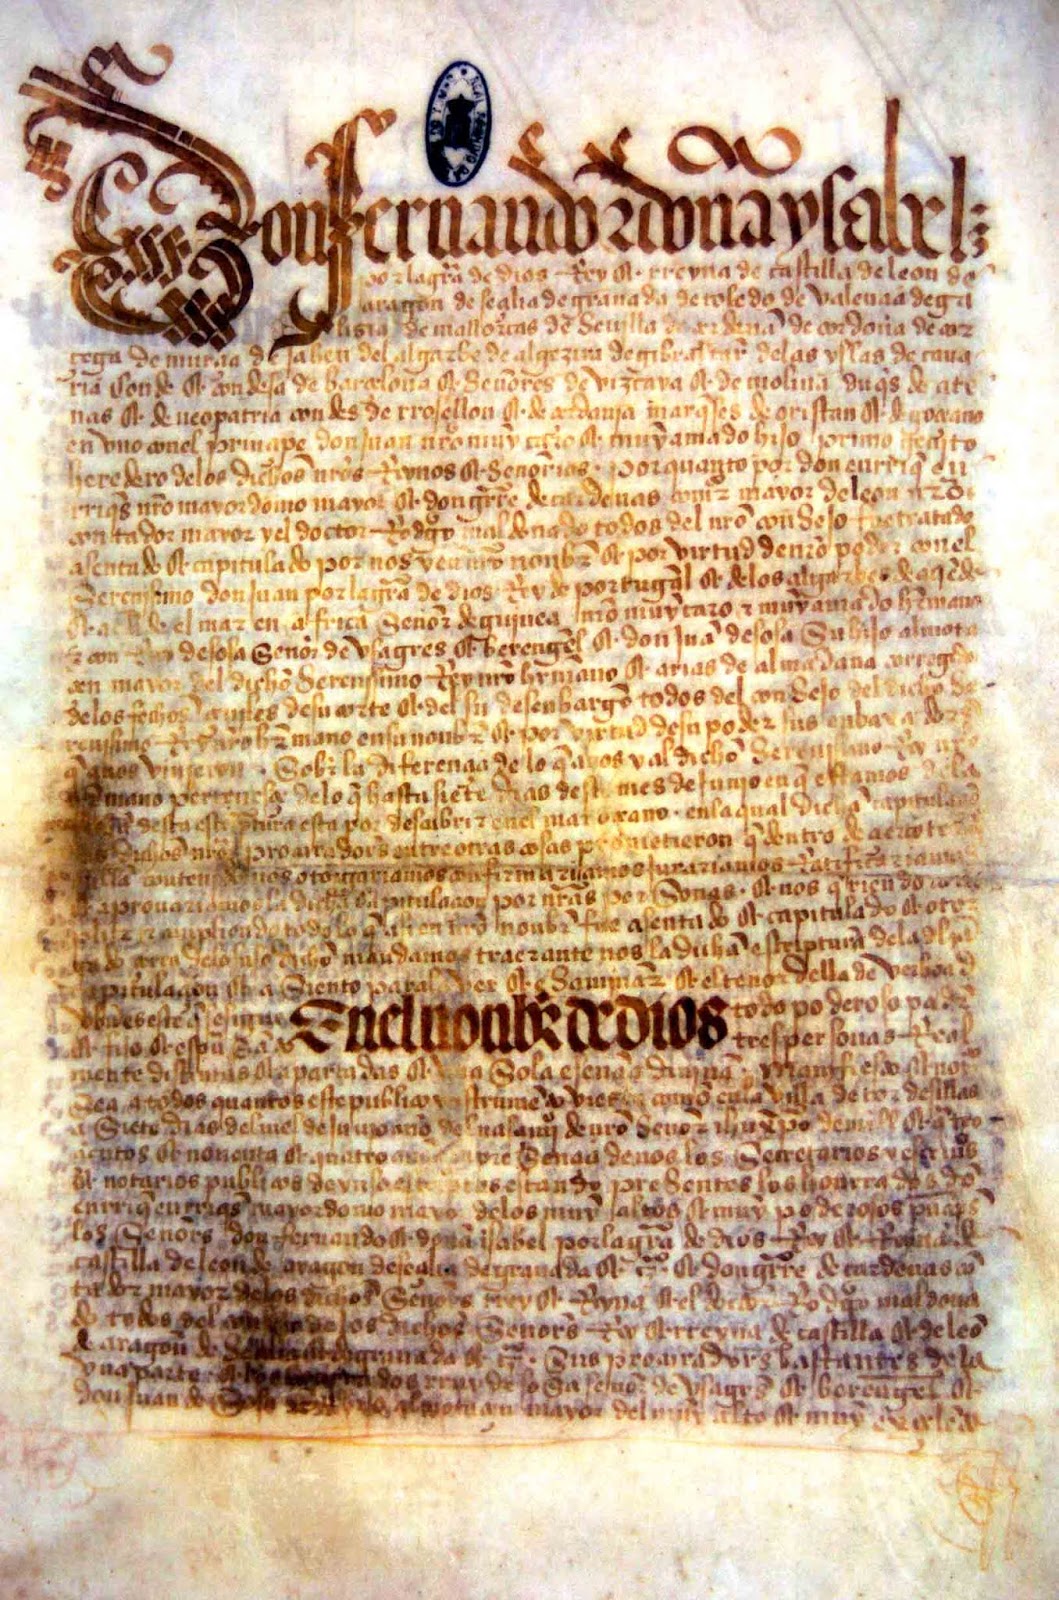 Don fernando ⁊ doña ysabel
por la graçia de dios Rey ⁊ rreyna de castilla de leon de
aragon de seçilia de granada de toledo de valençia de ga
lisia de mallorcas de Sevilla de çerdeña de cordova de cor
çega de murçia de jahen del algarbe de algezira de gibraltar de las yslas de cana
ria Conde ⁊ condesa de barçelona ⁊ Señores de vizcaya ⁊ de molina duqs de ate
nas ⁊ de neopatria condes de rrosellon ⁊ de çerdania marqses de oristan ⁊ de goçeano
en vno con el prinçipe don juan nro muy caro ⁊ muy amado hijo primo genito
heredero de los dichos nros Reynos ⁊ Señorios. por quanto por don enrriq en
rriqs nro mayordomo mayor ⁊ don gutrre de cardenas comisº mayor de leon nro
contador mayor y el doctor Rodgo maldonado todos del nro consejo fue tratado
asentado ⁊ capitulado por nos y en nro nonbre ⁊ por virtud de nro poder con el
Serenisimo don juan por la graçia de dios Rey de portugal ⁊ de los algarbes de aqnde
⁊ alende el mar en africa Señor de guinea nro muy caro ⁊ muy amado hrmano
⁊ con Ruy de sosa Señor de vsagres ⁊ berengel ⁊ don juan de sosa Su hijo almota
çen mayor del dicho Serenisimo Rey nro hrmano ⁊ arias de almadana corregdor
de los fechos çeviles de su corte ⁊ del su desenbargo todos del consejo del dicho Se
renisimo Rey nro hrmano en su nonbre ⁊ por virtud de su poder sus enbaxadores
q a nos vinieron. Sobre la diferençia de lo q a nos y al dicho Serenisimo Rey nro
hrmano perteneçe de lo q hasta siete dias deste mes de junio en q estamos de la
fecha desta escriptura esta por descubrir en el mar oçeano. en la qual dicha capitulaçion
los dichos nros procuradores entre otras cosas prometieron q dentro de çierto termino
en ella contenido nos otorgariamos confirmariamos jurariamos Ratificariamos
⁊ aprovariamos la dicha capitulaçion por nras personas. ⁊ nos qriendo conplir
⁊ cunpliendo todo lo q asi en nro nonbre fue asentado ⁊ capitulado ⁊ otor
gado çerca de lo suso dicho mandamos traer ante nos la dicha escriptura de la dicha
capitulaçion ⁊ asiento para la ver ⁊ esaminar ⁊ el tenor della de verbo ad
verbum es este q se sigue En el nonbre de dios todo poderoso padre
⁊ fijo ⁊ espu Santo tres personas Real
mente distintas ⁊ apartadas ⁊ vna Sola esençia divina. Manifiesto ⁊ notorio
Sea a todos quantos este publico ynstrumento vieren como en la villa de tordesillas
a Siete dias del mes de junio año del nasçimi de nro Señor ihu xpo de mill ⁊ quatro
çientos ⁊ noventa ⁊ quatro años en presençia de nos los Secretarios y escrivs
⁊ notarios publicos de yuso escriptos estando presentes los honrrados don
enrriq enrriqs mayordomo mayor de los muy altos ⁊ muy poderosos prinçips
los Señors don fernando ⁊ doña isabel por la graçia de dios Rey ⁊ Reyna de
castilla de leon de aragon de seçilia de granada ⁊ctª ⁊ don gutrre de cardenas con
tador mayor de los dichos Señors Rey ⁊ Reyna ⁊ el doctor Rodgo maldona
do todos del consejo de los dichos Señors Rey ⁊ rreyna de castilla ⁊ de leon
de aragon de Seçilia ⁊ de granada ⁊ctª. Sus procuradores bastantes de la
vna parte ⁊ los honrrados rruy de sosa Señor de vsagres ⁊ berengel ⁊
don juan de Sosa su hijo almotaçen mayor del muy alto ⁊ muy exçelente